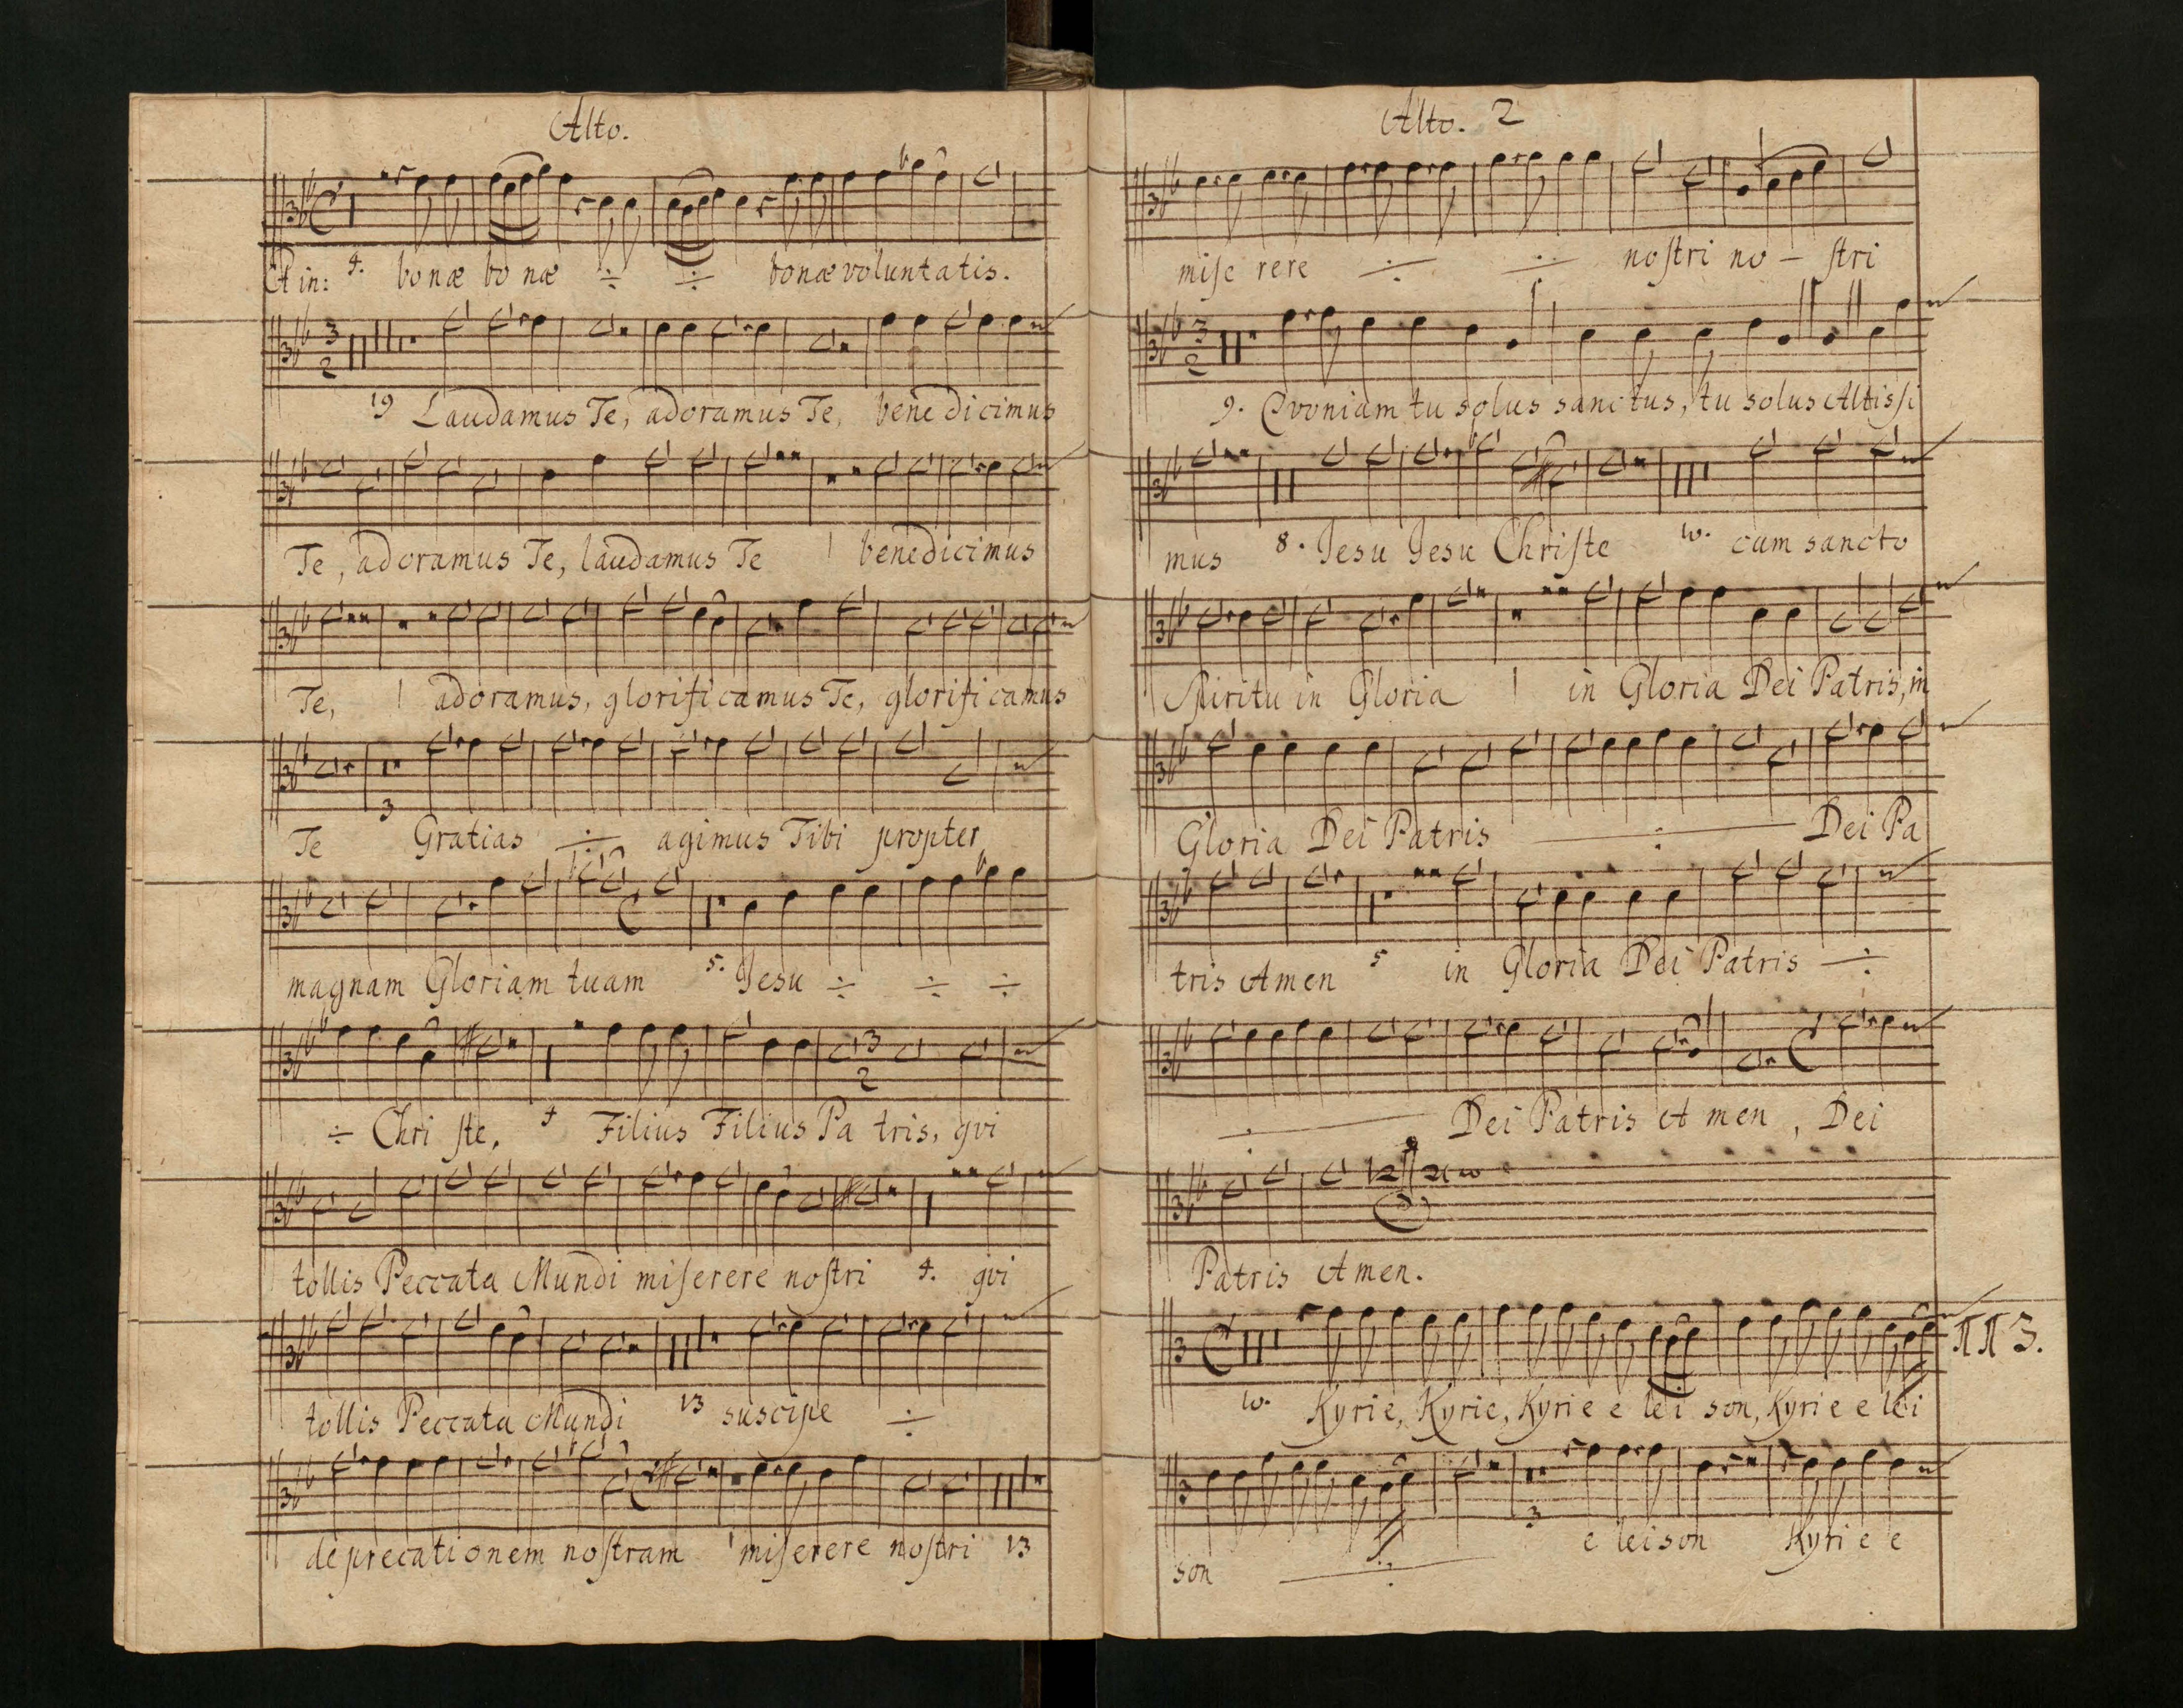 Alto.
Et in: 4. bonæ bo næ ÷ ÷ bonæ voluntatis.
3
2
19 Laudamus Te, adoramus Te, bene dicimus
Te, adoramus Te, laudamus Te 1 benedicimus
Te, 1 adoramus, glorificamus Te, glorificamus
3
Te Gratias ÷ agimus Tibi propter
magnam Gloriam tuam 5. Jesu ÷ ÷ ÷
3
2
÷ Chri ſte, 4 Filius Filius Pa tris, qvi
tollis Peccata Mundi miſerere noſtri 4. qvi
tollis Peccata Mundi 13 suscipe ÷
deprecationem noſtram 1 miſerere noſtri 13
Alto. 2
miſe rere ÷ ÷ noſtri no – ſtri
3
2
9. Qvoniam tu solus sanctus, tu solus Altisſi
mus 8. Jesu Jesu Chriſte 10. cum sancto
Spiritu in Gloria 1 in Gloria Dei Patris, in
Gloria Dei Patris ÷ Dei Pa
tris Amen 5 in Gloria Dei Patris ÷
÷ Dei Patris A men, Dei
Patris Amen.
ππ 3.
10. Kyrie, Kyrie, Kyrie e lei son, Kyri e e lei
3
son ÷ e leison Kyri e e